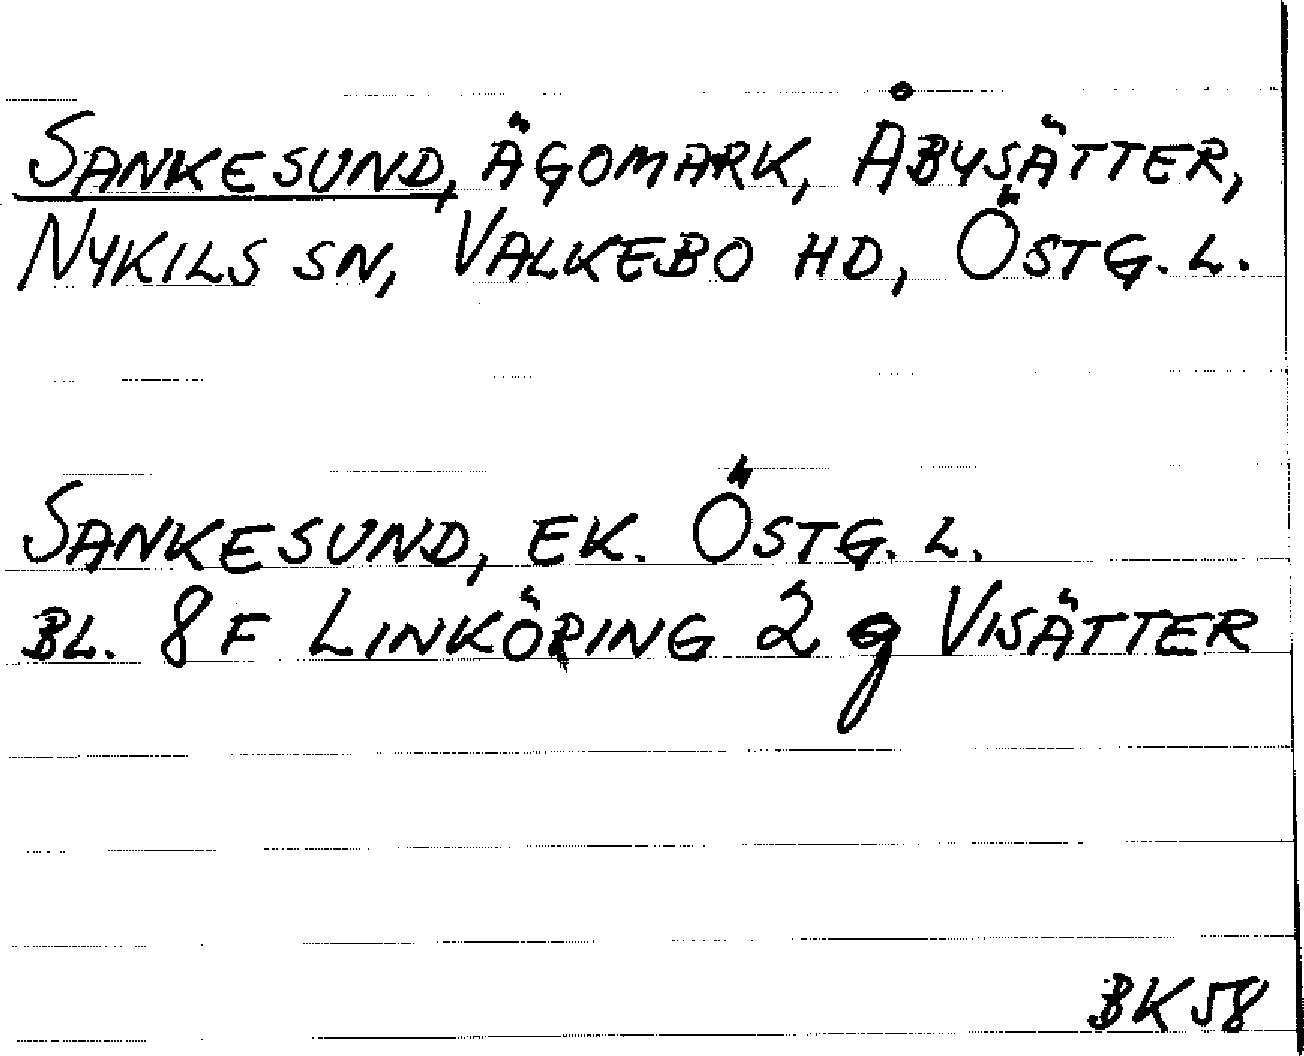 Sankesund, Ägomark, Åbysätter,
Nykils sn, Valkebo hd, Östg. l.
Sankesund, ek. Östg. l.
Bl. 8 F Linköping 2 g Visätter
BK 58